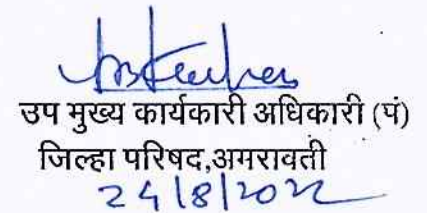 उप मुख्य कार्यकारी अधिकारी (पं)
जिल्हा परिषद,अमरावती
24/8/2022